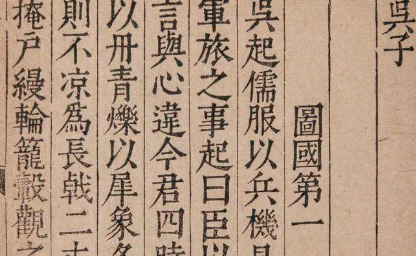 吳子
圖國第一
吳起儒服以兵機見
軍旅之事起曰臣以
言與心違今君四時
以丹青爍以犀象冬
則不凉爲長戟二丈
掩戶縵輪籠轂觀之